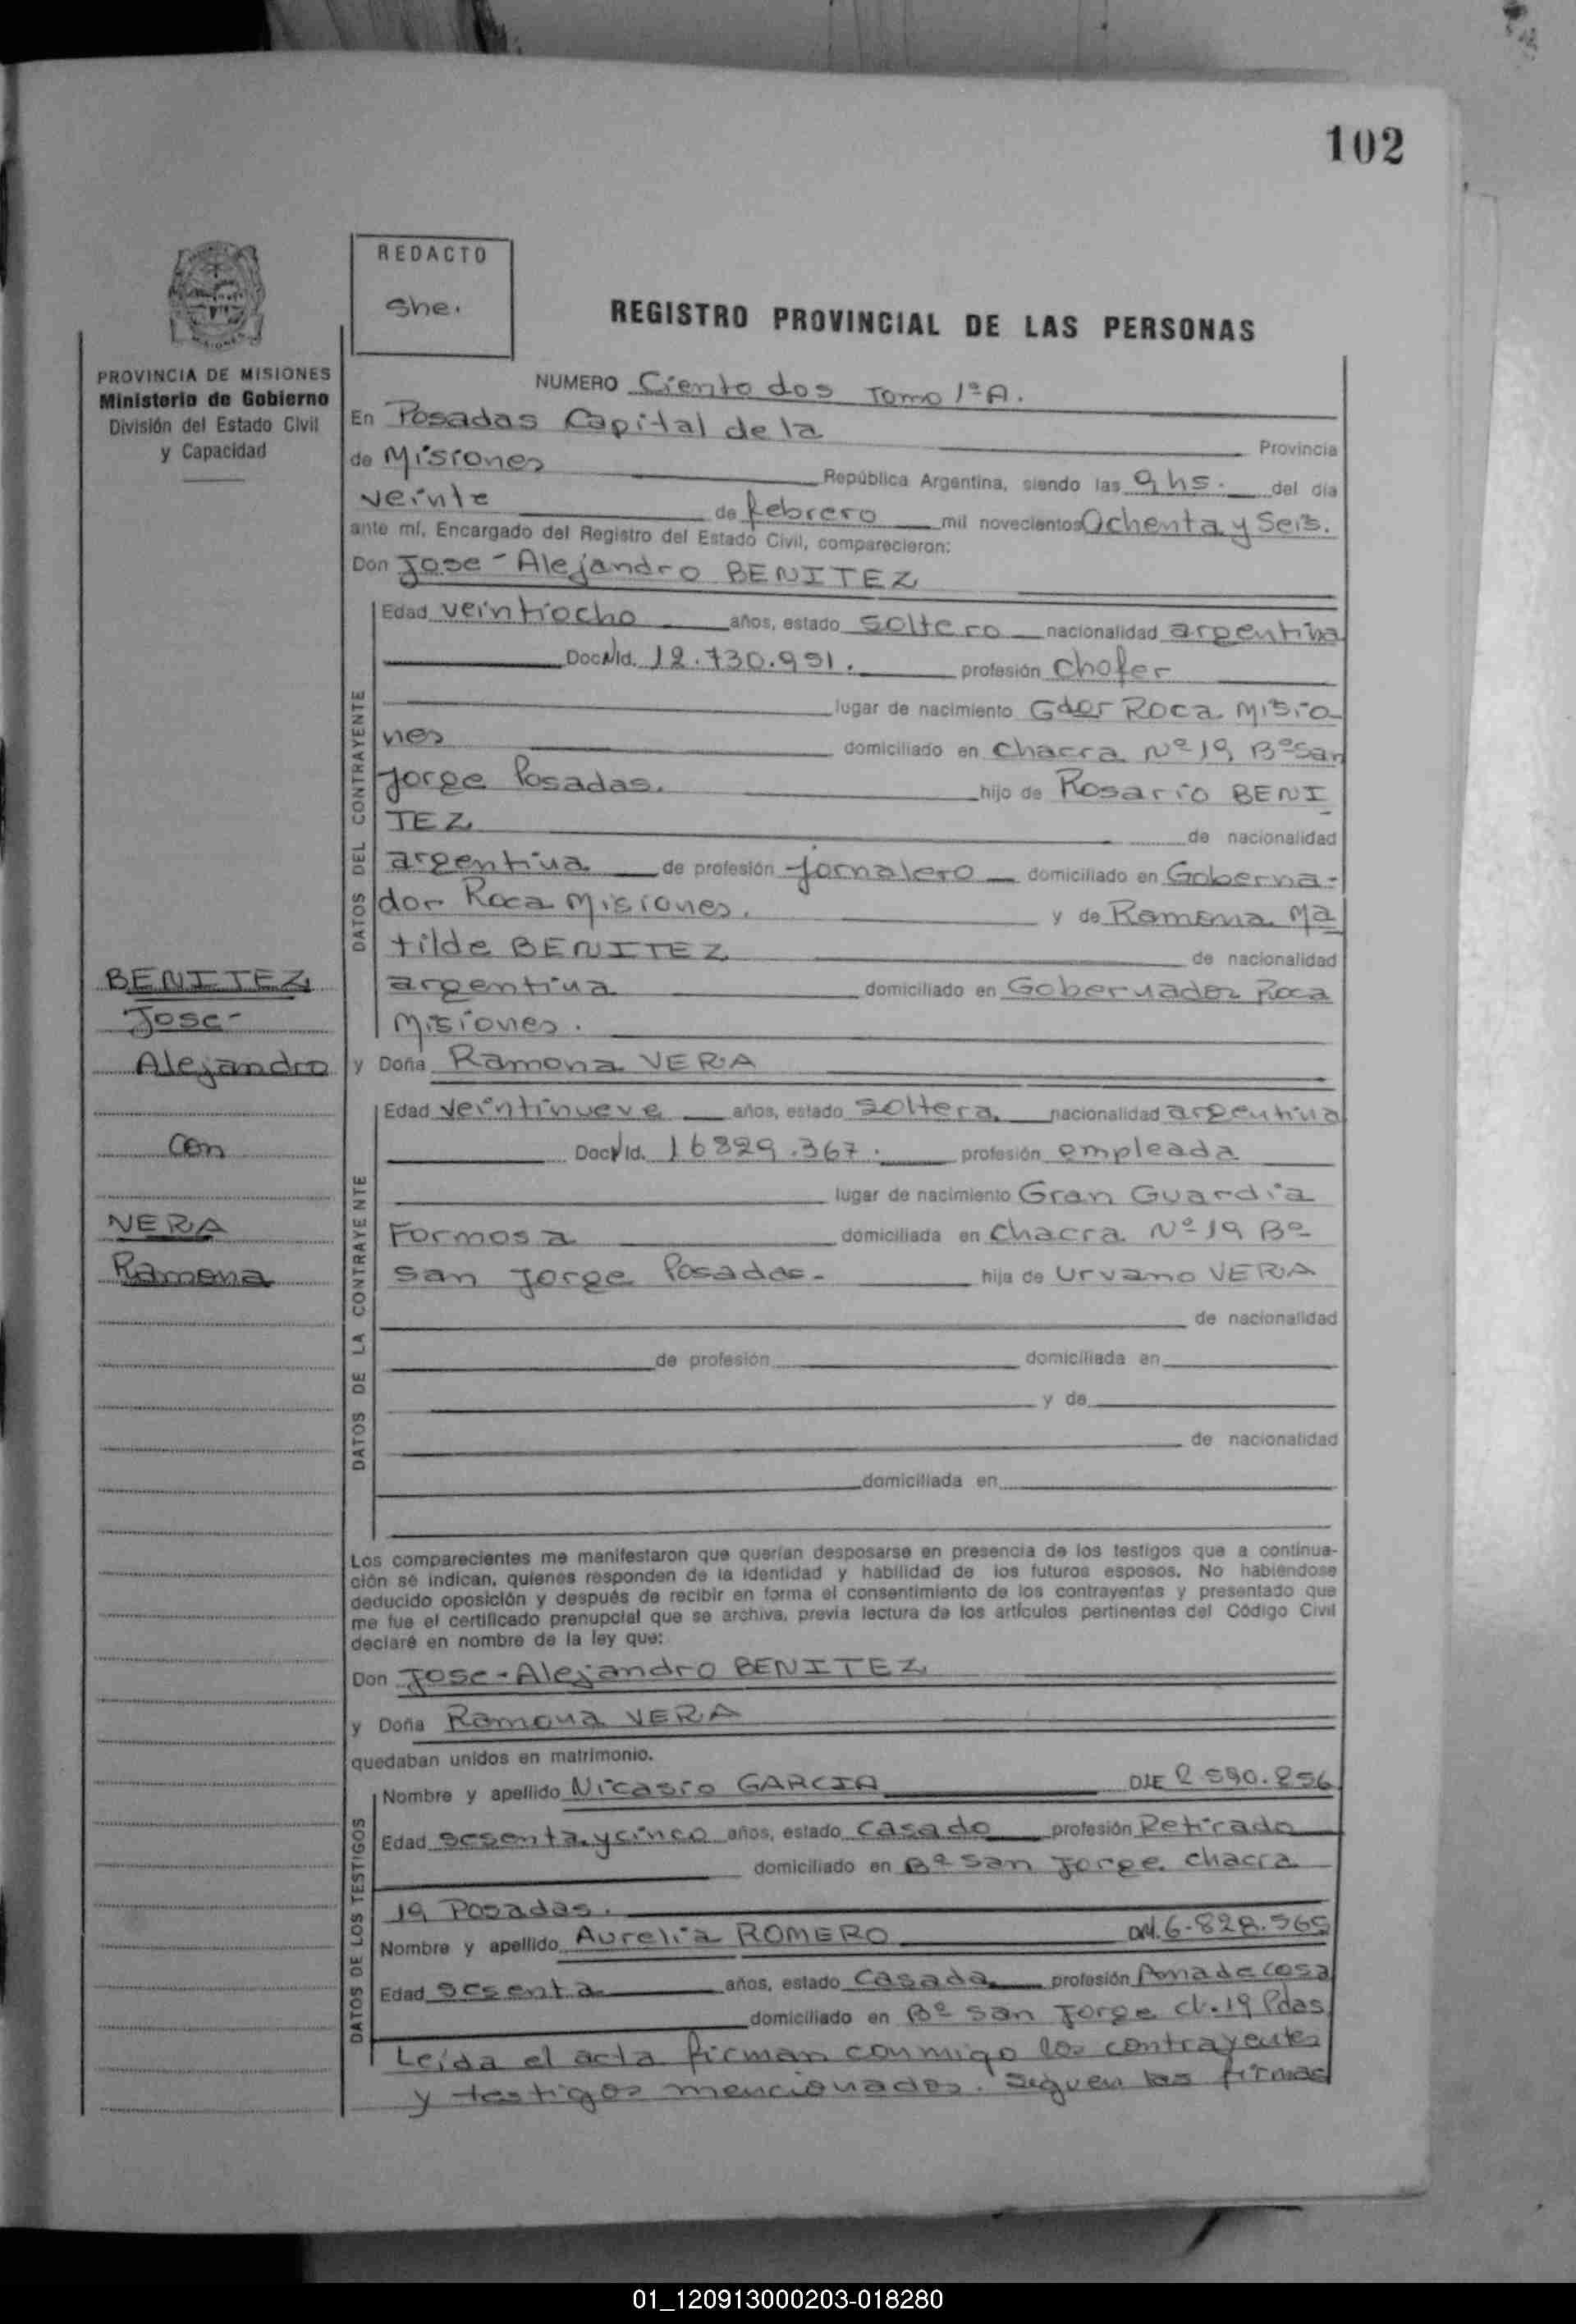 102
REDACTO
She.
REGISTRO PROVINCIAL DE LAS PERSONAS
PROVINCIA DE MISIONES
Ministerio de Gobierno
División del Estado Civil
y Capacidad
NUMERO Ciento dos Tomo 1º A.
En Posadas Capital de la Provincia
de Misiones República Argentina, siendo las 9 hs. del día
veinte de febrero mil novecientos Ochenta y Seis.
ante mí, Encargado del Registro del Estado Civil, comparecieron:
Don Jose - Alejandro BENITEZ
DATOS DEL CONTRAYENTE
Edad veintiocho años, estado soltero nacionalidad argentina
Doc. Id. 12.730.991. profesión chofer
lugar de nacimiento Gdor Roca Misio
nes domiciliado en Chacra Nº 19 Bº San
Jorge Posadas. hijo de Rosario BENI
TEZ de nacionalidad
argentina de profesión jornalero domiciliado en Goberna-
dor Roca Misiones. y de Ramona Ma
tilde BENITEZ de nacionalidad
argentina domiciliado en Gobernador Roca
Misiones.
BENITEZ
Jose-
Alejandro
con
VERA
Ramona
y Doña Ramona VERA
DATOS DE LA CONTRAYENTE
Edad veintinueve años, estado soltera nacionalidad argentina
Doc. Id. 16829.367. profesión empleada
lugar de nacimiento Gran Guardia
Formosa domiciliada en Chacra Nº 19 Bº
San Jorge Posadas. hija de Urvano VERA
de nacionalidad
de profesión domiciliada en
y de
de nacionalidad
domiciliada en
Los comparecientes me manifestaron que querían desposarse en presencia de los testigos que a continua-
ción se indican, quienes responden de la identidad y habilidad de los futuros esposos. No habiéndose
deducido oposición y después de recibir en forma el consentimiento de los contrayentes y presentado que
me fue el certificado prenupcial que se archiva, previa lectura de los artículos pertinentes del Código Civil
declaré en nombre de la ley que:
Don Jose - Alejandro BENITEZ
y Doña Ramona VERA
quedaban unidos en matrimonio.
DATOS DE LOS TESTIGOS
Nombre y apellido Nicasio GARCIA 2 590.856
Edad sesenta y cinco años, estado casado profesión Retirado
domiciliado en Bº San Jorge chacra
19 Posadas.
Nombre y apellido Aurelia ROMERO DNI. 6.828.565
Edad sesenta años, estado casada profesión Ama de casa
domiciliado en Bº San Jorge ch. 19 Pdas
Leída el acta firman conmigo los contrayentes
y testigos mencionados. Siguen las firmas
01_120913000203-018280